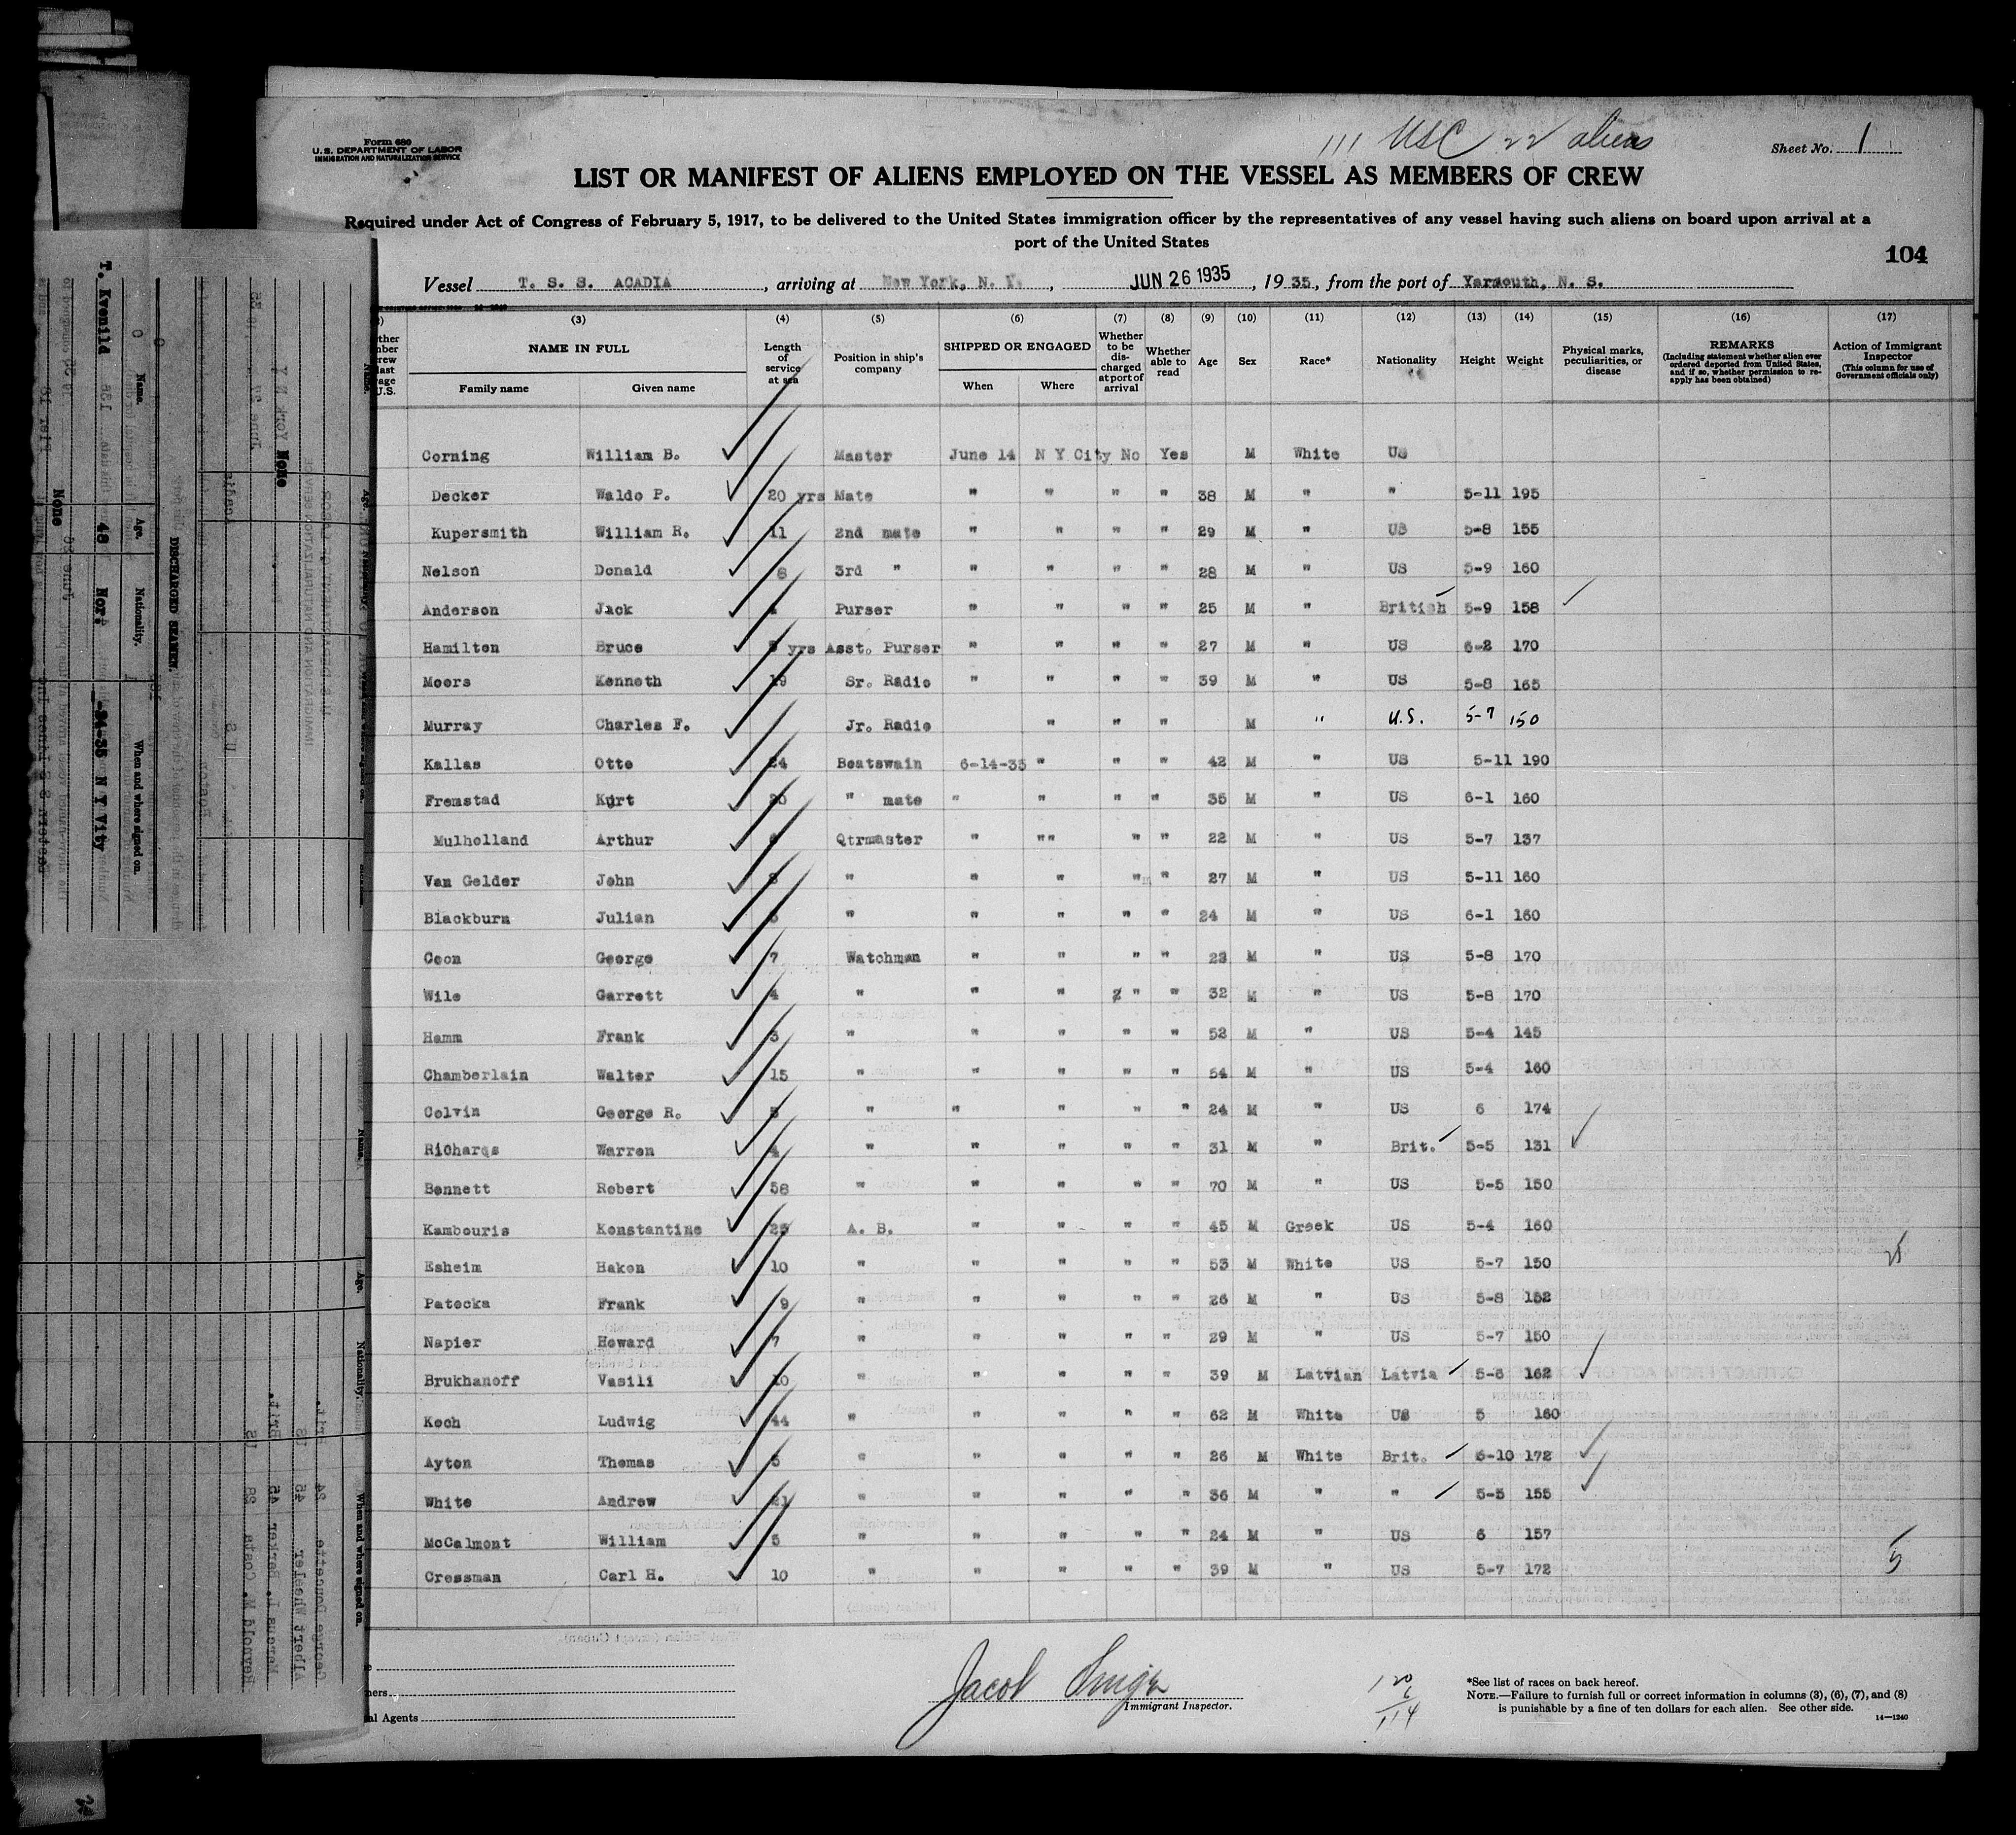 111 USC 22 aliens
Form 680
U. S. DEPARTMENT OF LABOR
IMMIGRATION AND NATURALIZATION SERVICE
Sheet No. 1
LIST OR MANIFEST OF ALIENS EMPLOYED ON THE VESSEL AS MEMBERS OF CREW
Required under Act of Congress of February 5, 1917, to be delivered to the United States immigration officer by the representatives of any vessel having such aliens on board upon arrival at a
port of the United States
104
Vessel T. S. S. ACADIA , arriving at New York, N. Y. , JUN 26 1935 , 1935, from the port of Yarmouth, N. S.
(3) (4) (5) (6) (7) (8) (9) (10) (11) (12) (13) (14) (15) (16) (17)
NAME IN FULL Length of service at sea Position in ship's company SHIPPED OR ENGAGED Whether to be discharged at port of arrival Whether able to read Age Sex Race* Nationality Height Weight Physical marks, peculiarities, or disease REMARKS (Including statement whether alien ever ordered deported from United States, and if so, whether permission to reapply has been obtained) Action of Immigrant Inspector (This column for use of Government officials only)
Family name Given name When Where
Corning William B. Master June 14 N Y City No Yes M White US
Decker Waldo P. 20 yrs Mate " " " " 38 M " " 5-11 195
Kupersmith William R. 11 2nd mate " " " " 29 M " US 5-8 155
Nelson Donald 8 3rd " " " " " 28 M " US 5-9 160
Anderson Jack Purser " " " " 25 M " British 5-9 158
Hamilton Bruce yrs Asst. Purser " " " " 27 M " US 6-2 170
Moers Kenneth 19 Sr. Radio " " " " 39 M " US 5-8 165
Murray Charles F. Jr. Radio " " " M " U.S. 5-7 150
Kallas Otto 24 Boatswain 6-14-35 " " " 42 M " US 5-11 190
Fremstad Kurt " mate " " " " 35 M " US 6-1 160
Mulholland Arthur Qtrmaster " "" " " 22 M " US 5-7 137
Van Gelder John " " " " " 27 M " US 5-11 160
Blackburn Julian " " " " " 24 M " US 6-1 160
Coon George 7 Watchman " " " " 23 M " US 5-8 170
Wile Garrett 4 " " " " " 32 M " US 5-8 170
Hamm Frank 3 " " " " " 52 M " US 5-4 145
Chamberlain Walter 15 " " " " " 54 M " US 5-4 160
Colvin George R. " " " " " 24 M " US 6 174
Richards Warren 4 " " " " " 31 M " Brit. 5-5 131
Bennett Robert 58 " " " " " 70 M " US 5-5 150
Kambouris Konstantine A. B. " " " " 45 M Greek US 5-4 160
Esheim Hakon 10 " " " " " 53 M White US 5-7 150
Patecka Frank 9 " " " " " 26 M " US 5-8 152
Napier Howard 7 " " " " " 29 M " US 5-7 150
Brukhanoff Vasili 10 " " " " " 39 M Latvian Latvia 5-6 162
Koch Ludwig 44 " " " " " 62 M White US 5 160
Ayton Thomas 5 " " " " " 26 M White Brit. 5-10 172
White Andrew 21 " " " " " 36 M " " 5-5 155
McCalmont William 5 " " " " " 24 M " US 6 157
Cressman Carl H. 10 " " " " " 39 M " US 5-7 172
Jacob
Immigrant Inspector.
120
6
114
*See list of races on back hereof.
NOTE.—Failure to furnish full or correct information in columns (3), (6), (7), and (8)
is punishable by a fine of ten dollars for each alien. See other side.
14—1240
DISCHARGED SEAMEN.
Name. Age. Nationality. When and where signed on.
T. Kvenild 48 Nor. -24-35 N Y Vity
None
None
George Doucette 42 Brit.
Albert Wheeler 45 US
Marcus L. Barker 45 Brit.
Reynold M. Costa 28 US